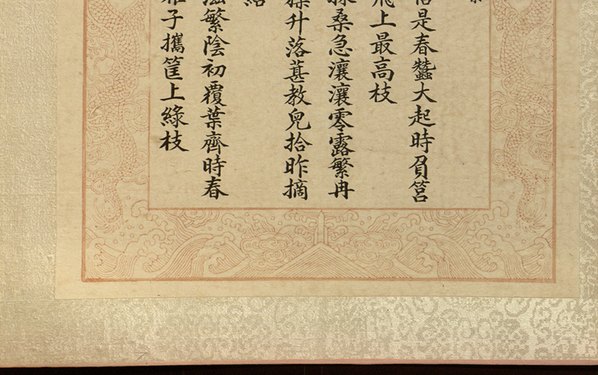 恰是春蠶大起時負筥
飛上最高枝
採桑急瀼瀼零露繁冉
猱升落葚教兒拾昨摘
繁陰初覆葉齊時春
稚子攜筐上綠枝